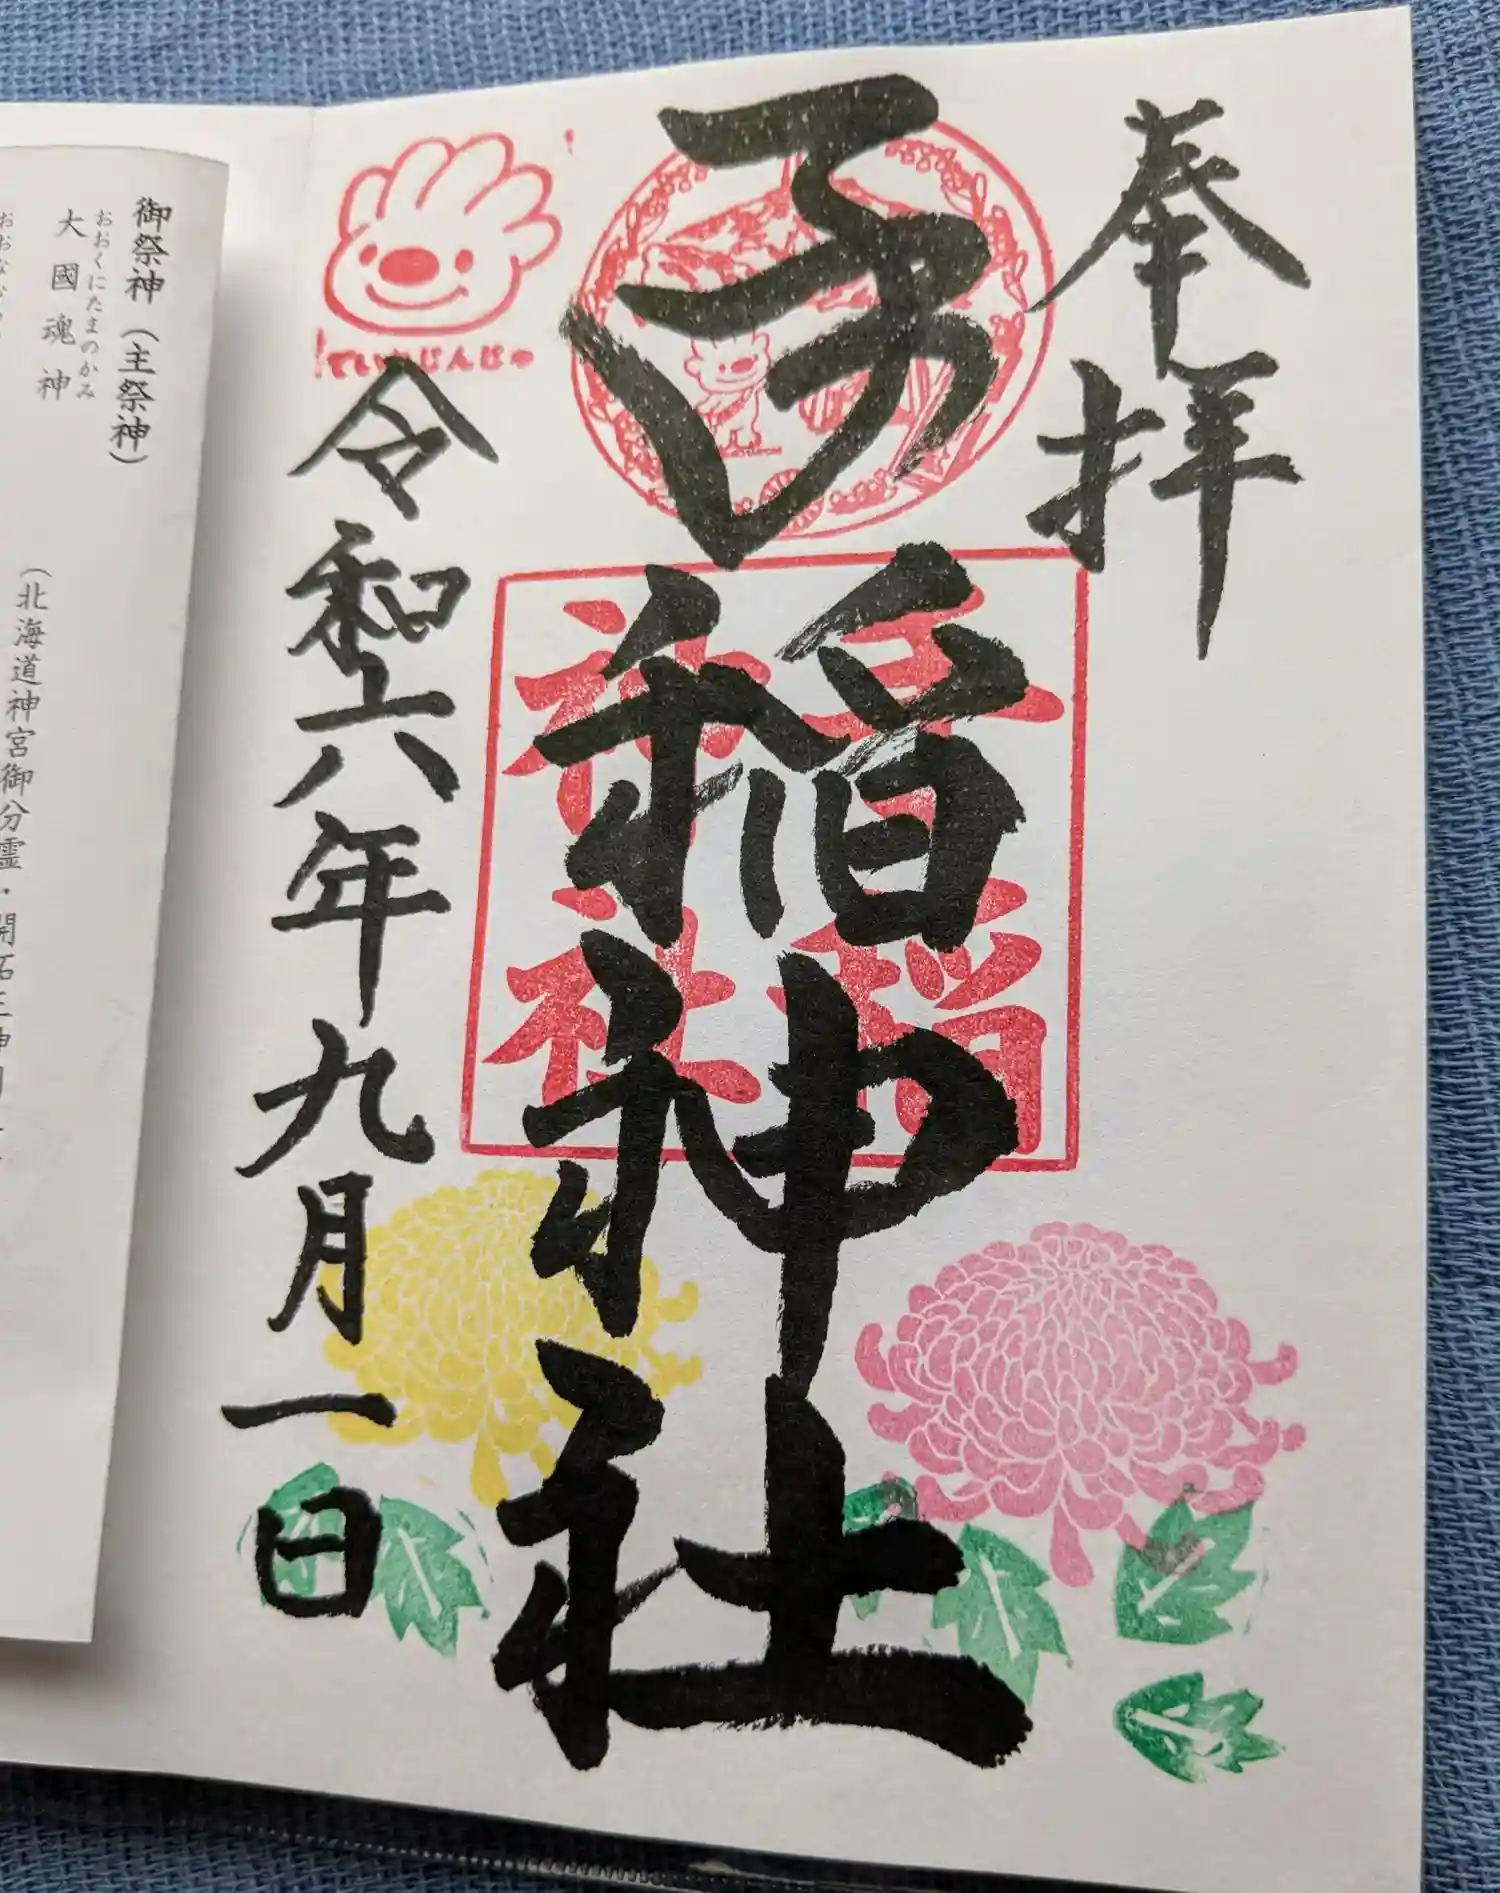 奉拝
手稲神社
手稲
神社
ていねじんじゃ
令和六年九月一日
御祭神（主祭神）
おおくにたまのかみ
大國魂神
（北海道神宮御分霊・開拓三神